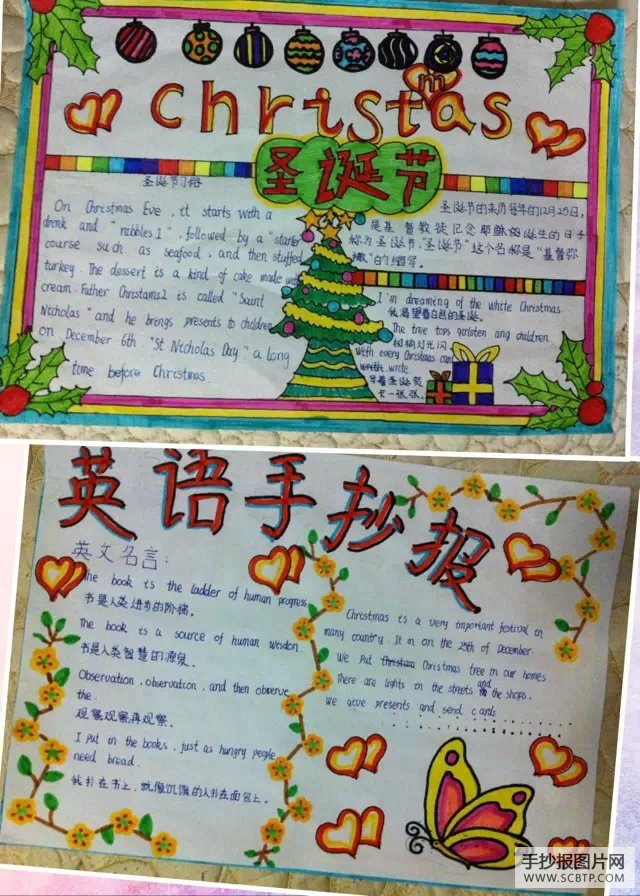 christmas
圣诞节
圣诞节习俗
On Christmas Eve, it starts with a
drink and "nibbles1", followed by a "starter"
course such as seafood, and then stuffed
turkey. The dessert is a kind of cake made with
cream. Father Christams2 is called "Saint
Nicholas" and he brings presents to children
on December 6th. "St Nicholas Day" a long
time before Christmas
圣诞节的来历每年的12月25日,
是基督教徒记念耶稣诞生的日子
称为圣诞节,"圣诞节"这个名称是"基督弥
撒"的缩写。
I'm dreaming of the white Christmas.
我渴望着白色的圣诞,
The tree tops glisten ang children
树梢灯光闪
With every Christmas card
write
写着圣诞贺
卡一张张。
英语手抄报
英文名言:
The book is the ladder of human progress
书是人类进步的阶梯。
The book is a source of human wisdon.
书是人类智慧的源泉。
Observation, observation, and then observe
the.
观察观察再观察。
I Put in the books, just as hungry people
need bread.
我扑在书上,就像饥饿的人扑在面包上。
Christmas is a very important festival in
many country. It in on the 25th of December
We Put Christmas tree in our homes
There are lights in the streets and the shops.
We give Presents and send cards
手抄报图片网
WWW.SCBTP.COM